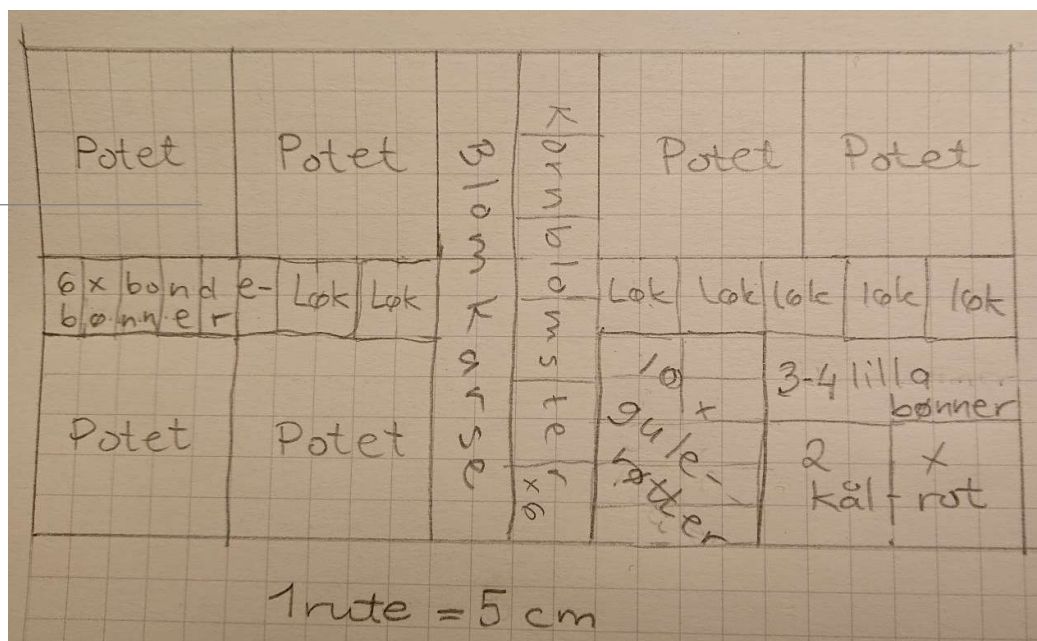 Potet
Potet
Blomkarse
Kornblomster x6
Potet
Potet
6 x bonde-
bønner
Løk
Løk
Løk
Løk
løk
løk
løk
Potet
Potet
10 x
gule-
røtter
3-4 lilla
bønner
2 x
kål- rot
1 rute = 5 cm